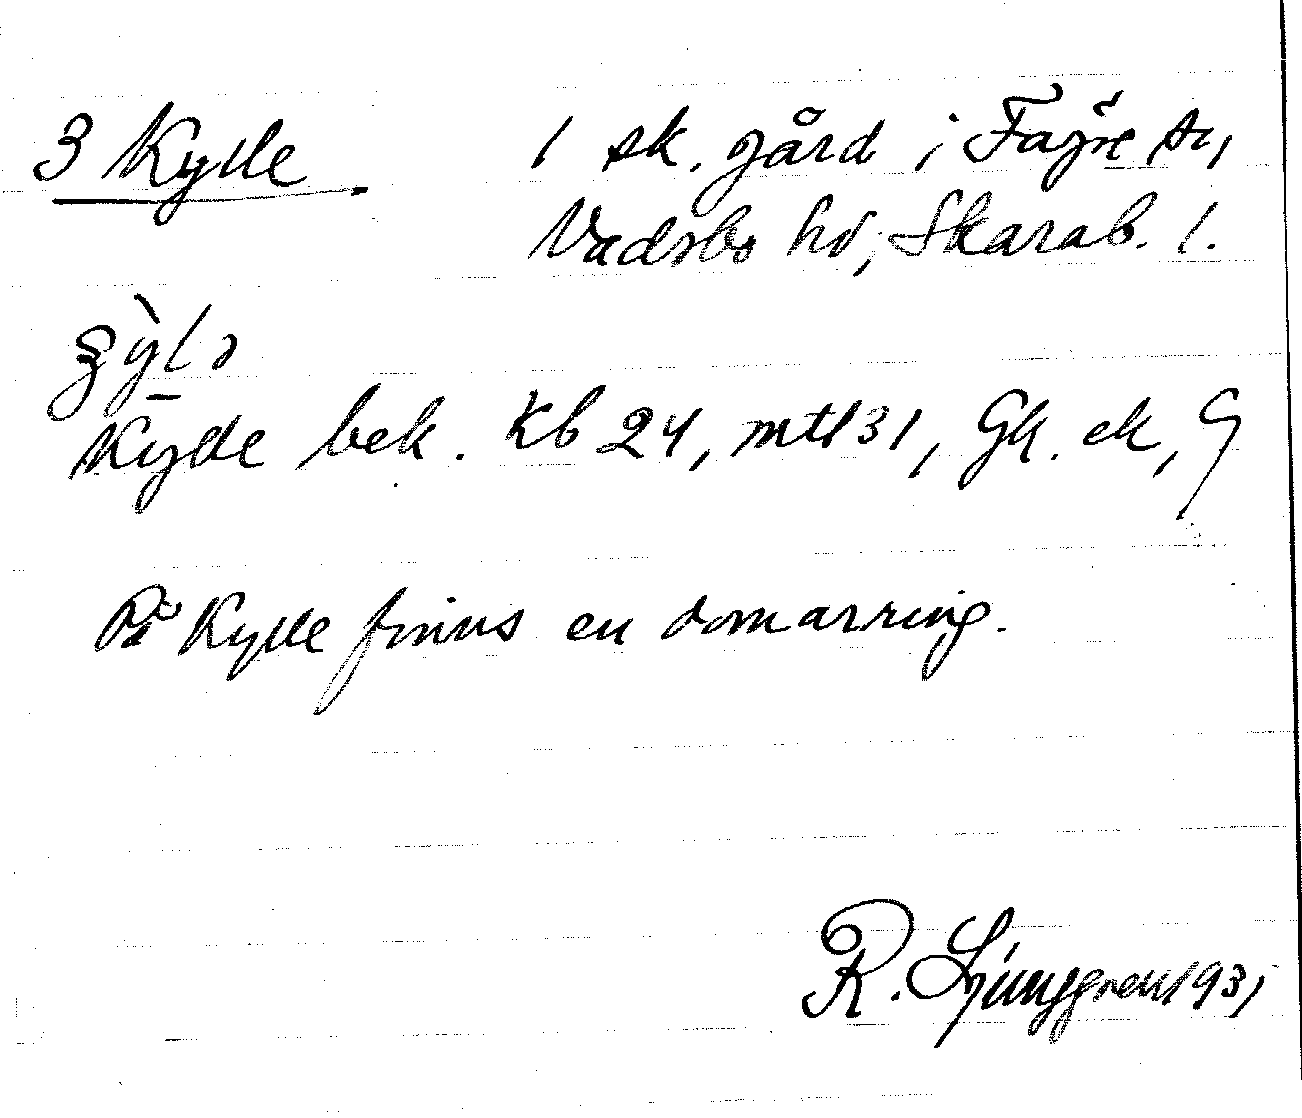 3 Kylle 1 sk. gård i Fägre sn,
Vadsbo hd, Skarab. l.
Kylle bek. Kb 24, mtl 31, Gk. ek, G
På Kylle finns en domarring.
R. Ljunggren 1931